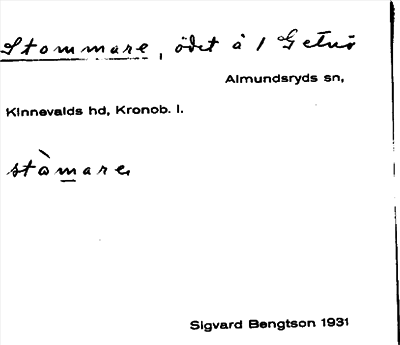 Stommare, ödet å 1 Getnö
Almundsryds sn,
Kinnevalds hd, Kronob. l.
stòmare
Sigvard Bengtson 1931